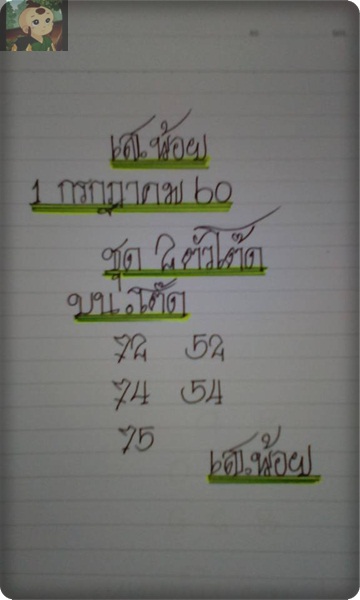 เส.น้อย
1 กรกฎาคม 60
ชุด 2 ตัวโต๊ด
บน.โต๊ด
72 52
74 54
75
เส.น้อย